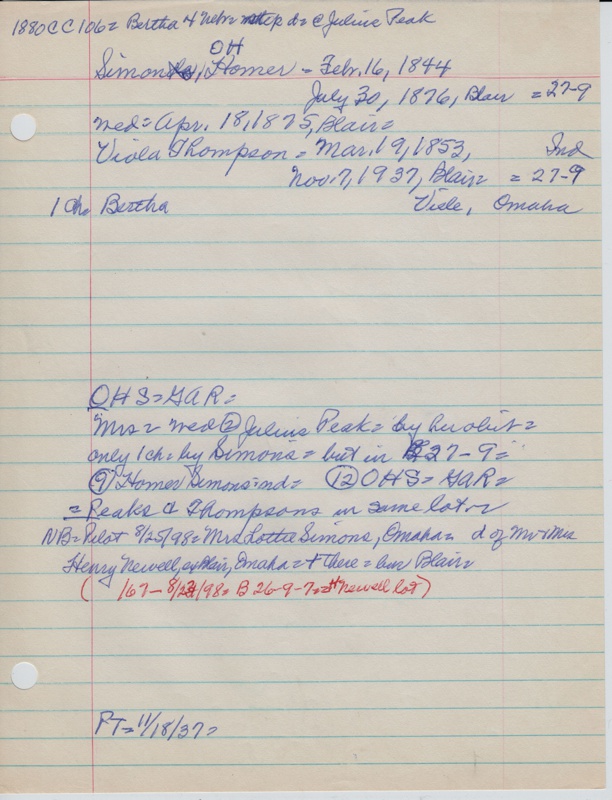 1880 C C 106 = Bertha 4 Nebr step d = C Julius Peak
OH
Simons, Homer = Febr. 16, 1844
July 30, 1876, Blair = 27-9
med = Apr. 18, 1875, Blair =
Viola Thompson = Mar. 19, 1853, Ind
Nov. 7, 1937, Blair = 27-9
1 Ch. Bertha Viele, Omaha
OHS = GAR =
Mrs = med ② Julius Peak = by her obit =
only 1 ch = by Simons = but in 27-9 =
⑨ Homer Simons = nd = ⑫ OHS = GAR =
= Peaks & Thompsons in same lot =
NB = Pilot 8/25/98 = Mrs Lottie Simons, Omaha = d of Mr & Mrs
Henry Newell, Blair, Omaha = + there = bur Blair =
( 167 - 8/24/98 = B 26-9-7 = Newell lot )
PT = 11/18/37 =